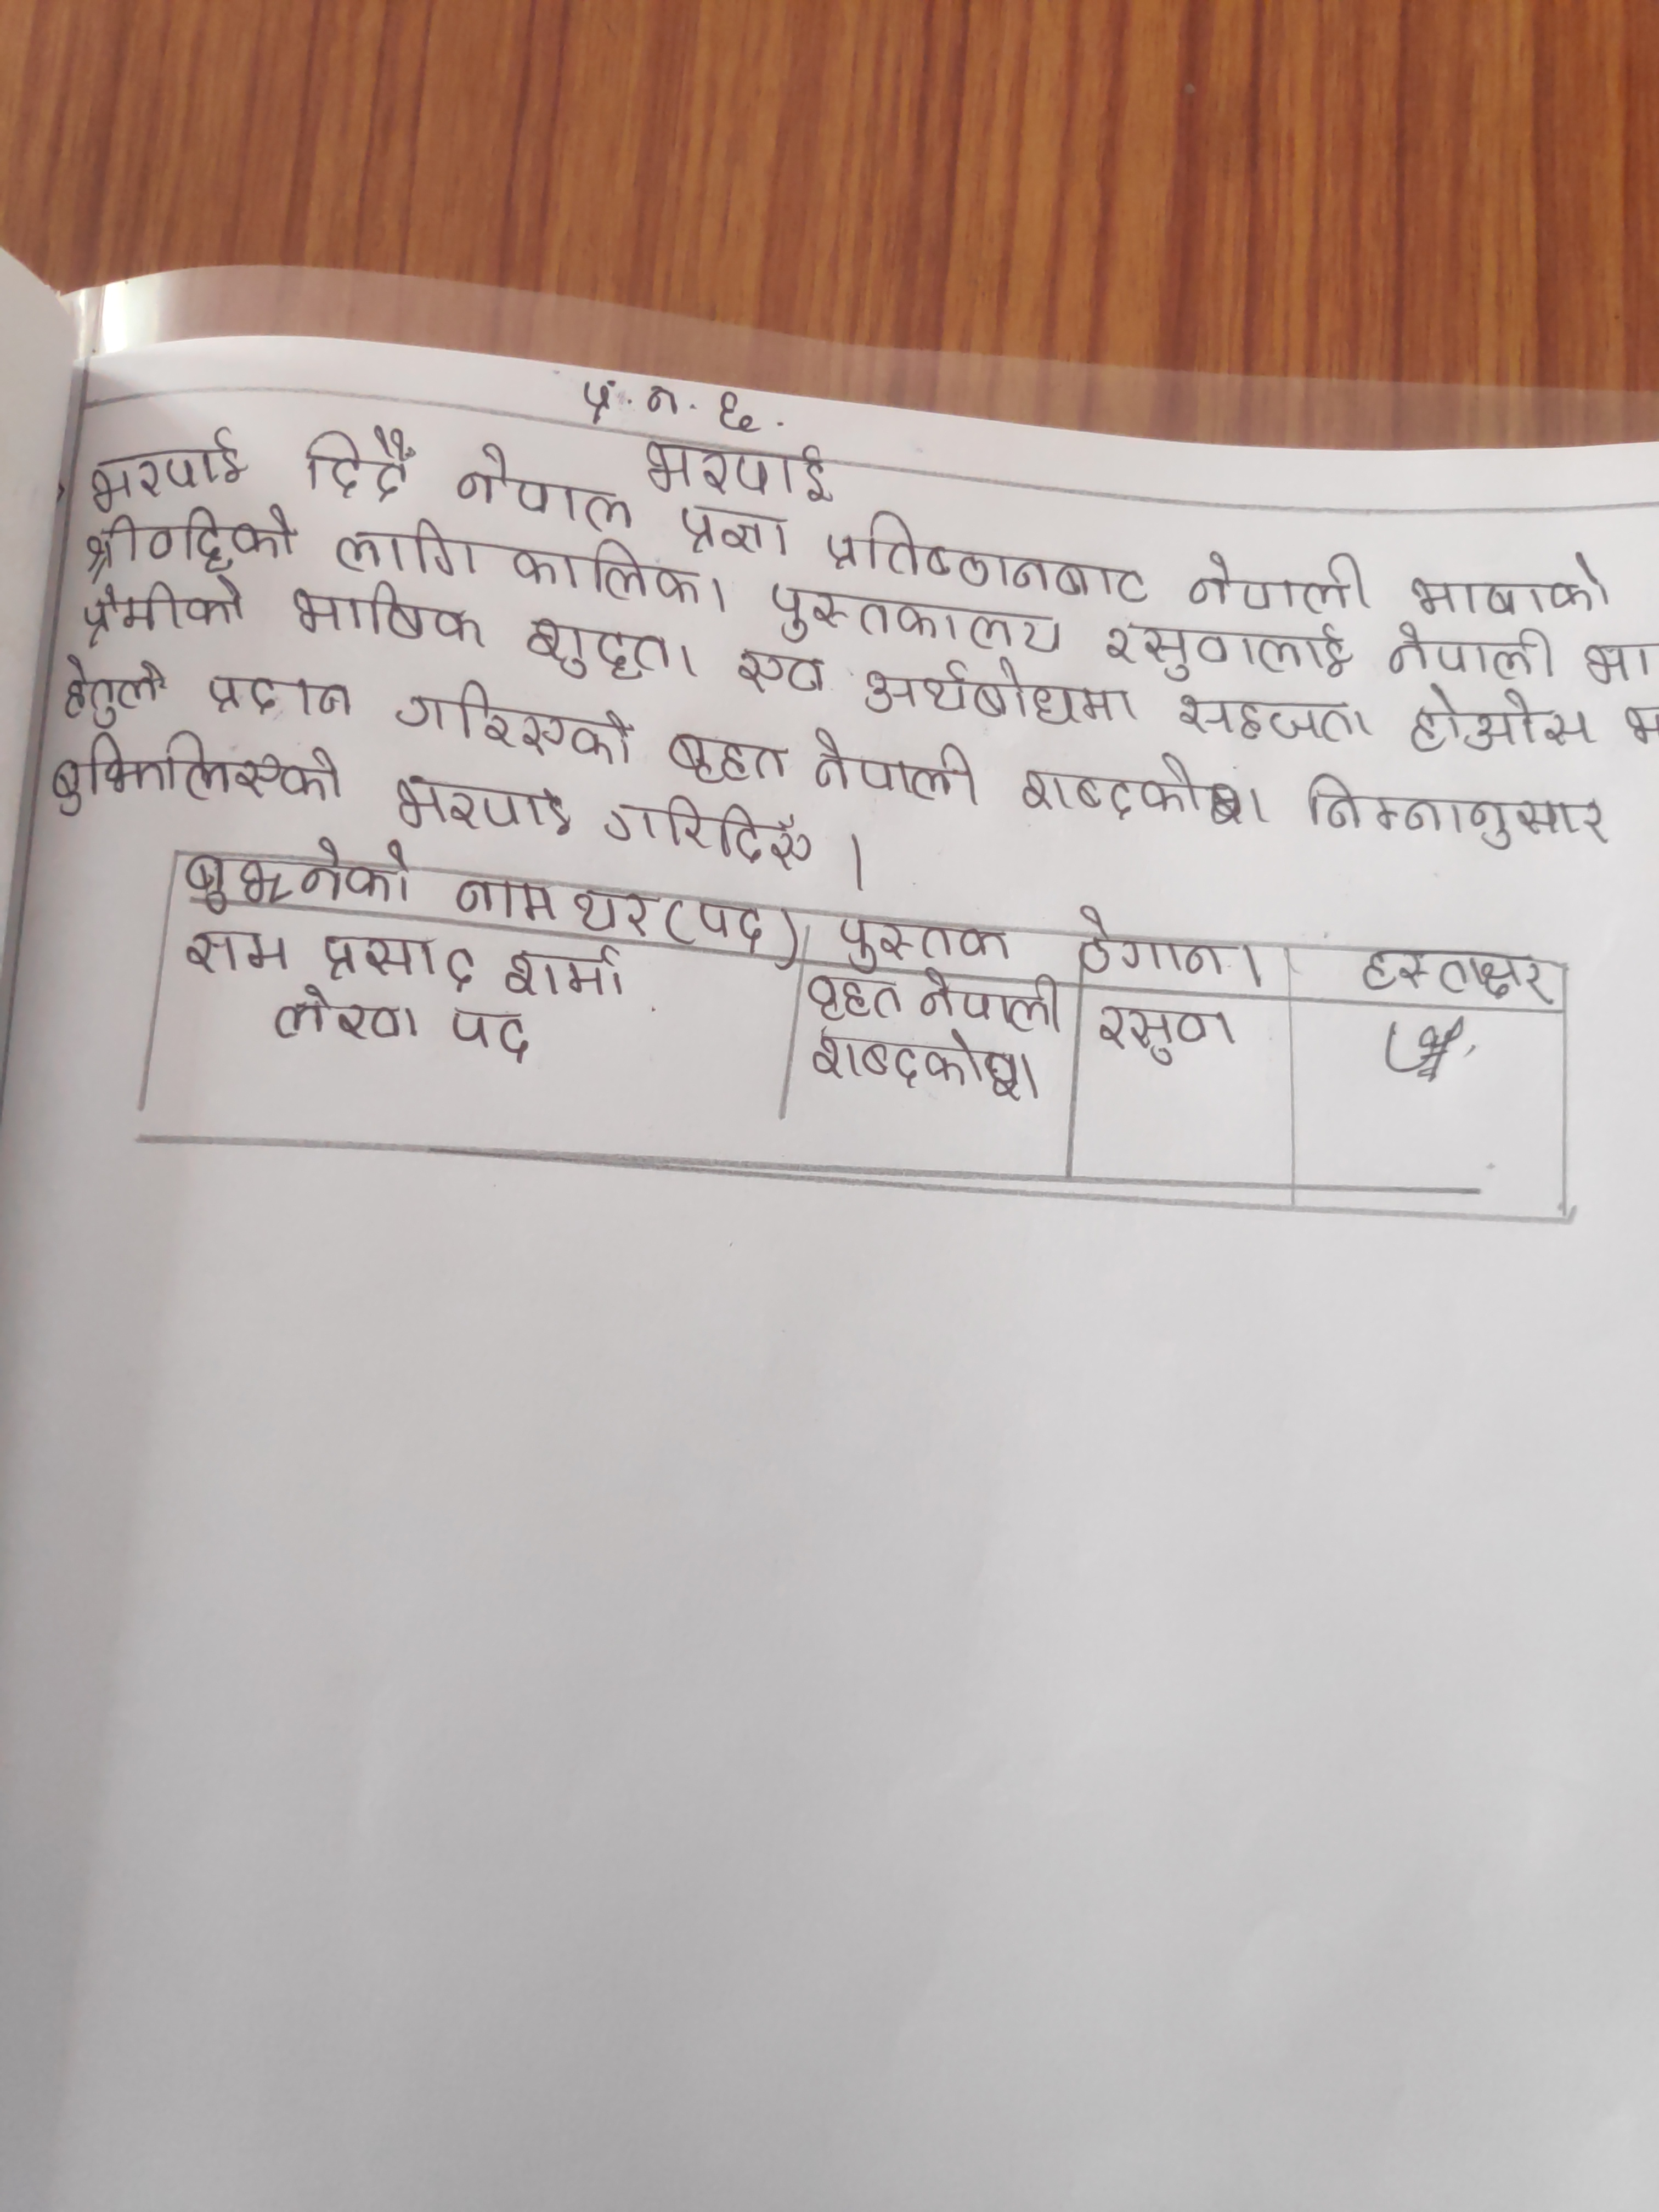 प्र. न. ६.
भरपाई
भरपाई दिदैँ नेपाल प्रज्ञा प्रतिष्ठानबाट नेपाली भाषाको
श्रीवद्दिको लागि कालिका पुस्तकालय रसुवालाई नेपाली भा
प्रेमीको भाषिक शुद्दता एवं अर्थबोधमा सहजता होओस भ
हेतुले प्रदान गरिएको बृहत नेपाली शब्दकोश निम्नानुसार
बुझिलिएको भरपाई गरिदिएँ ।
बुझ्नेको नाम थर (पद) पुस्तक ठेगाना हस्ताक्षर
राम प्रसाद शर्मा वृहत नेपाली रसुवा
लेखा पद शब्दकोश